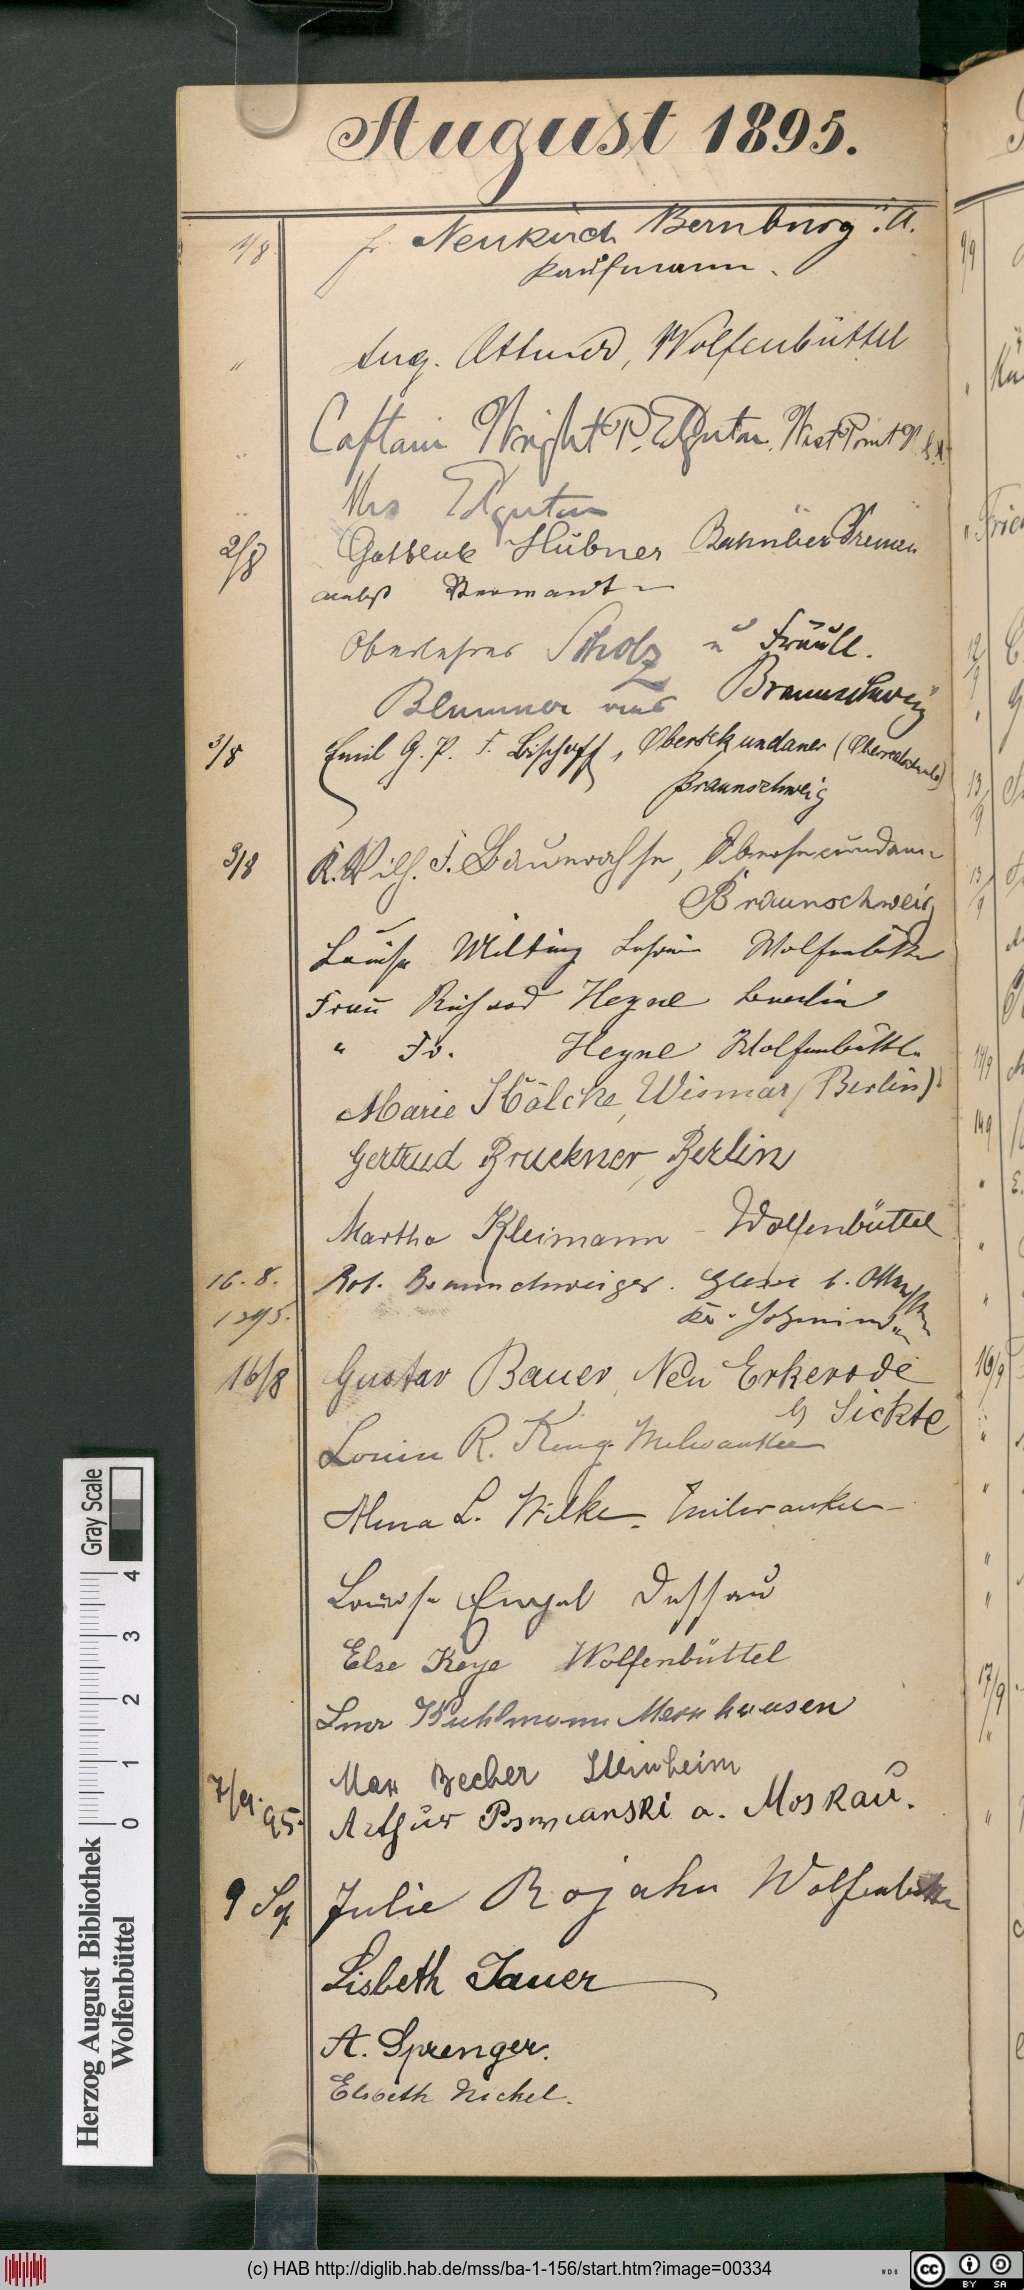 August 1895.
1/8 Fr. Neukirch Bernburg i. A.
Kaufmann.
" Aug. Ottmer, Wolfenbüttel
" Captain Wright P. Edgerton. West Point N.
" Mrs Edgerton
2/8 Gottlieb Hübner Bremen
nebst Verwandte
Oberlehrer Scholz u Fräull.
Blumner aus Braunschweig
3/8 Emil G. P. F. Bischoff, Obersekundaner (Oberrealschule)
Braunschweig
3/8 K. Wilh. F. Obersecundaner
Braunschweig
Louise Milting Wolfenbüttel
Frau Richard Heyne Berlin
" Fr. Heyne Wolfenbüttel
Marie Kölcke, Wismar (Berlin)
Gertrud Bruckner, Berlin
Martha Kleimann - Wolfenbüttel
16. 8. Rob. Braunschweiger.
1895. Kr. Holzminden
16/8 Gustav Bauer, Neu Erkerode
b/ Sickte
Louise R. King. Milwaukee
Alma L. Wilke. Milwaukee
Louise Engel Dessau
Else Keye Wolfenbüttel
Kuhlmann
Max Becher Steinheim
7/9. 95. Arthur Posnanski a. Moskau.
9 Sep Julie Rojahn Wolfenbüttel
Lisbeth Jauer
A. Sprenger.
Elsbeth Nickel.
Gray Scale
0 1 2 3 4
Herzog August Bibliothek
Wolfenbüttel
(c) HAB http://diglib.hab.de/mss/ba-1-156/start.htm?image=00334
WDB
cc BY SA